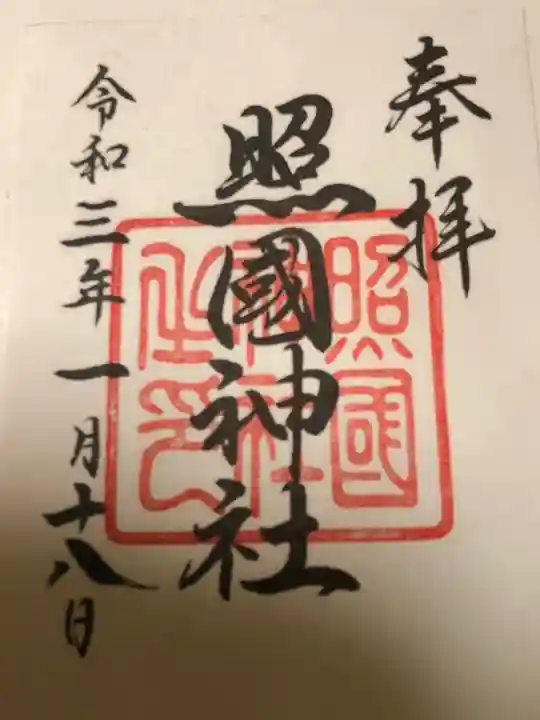 奉拝
照國神社
照國神社之印
令和三年一月十八日